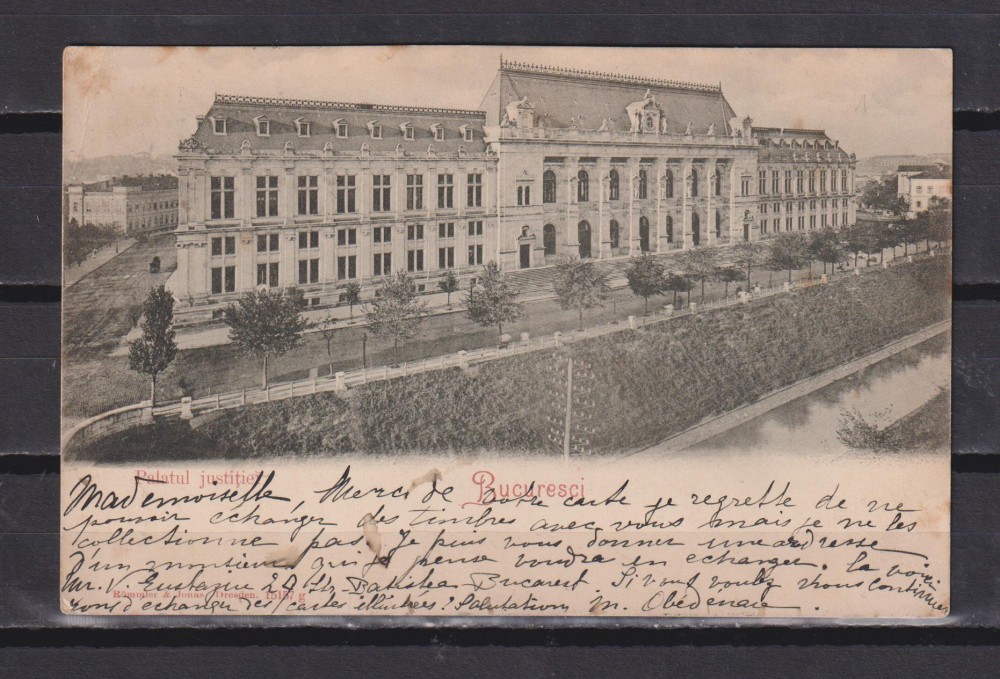 Palatul justiției
Bucuresci
Mademoiselle, Merci de votre carte je regrette de ne
pouvoir échanger des timbres avec vous mais je ne les
collectionne pas. Je puis vous donner une adresse
d'un monsieur qui je pense voudra en échanger. La voici
Mr. V. 20 Str. Batistea Bucarest Si vous voulez nous continue
rons d'échanger des cartes illustrées? Salutations M. Obédénare.
Römmler & Jonas, Dresden. 15157 g